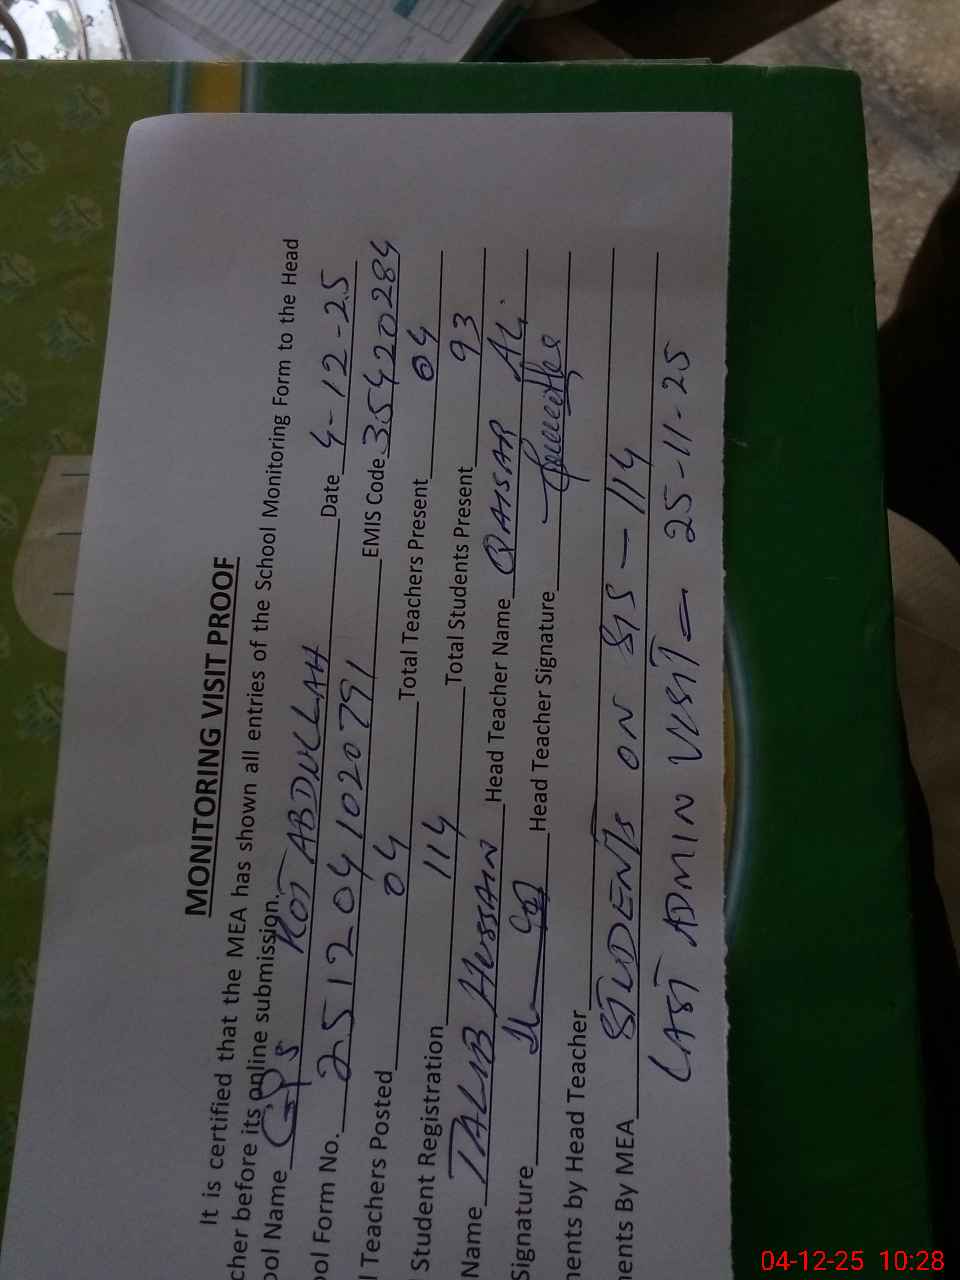 MONITORING VISIT PROOF
It is certified that the MEA has shown all entries of the School Monitoring Form to the Head
cher before its online submission.
ool Name GPS KOT ABDULLAH Date 4-12-25
ool Form No. 2512041020791 EMIS Code 35420284
l Teachers Posted 04 Total Teachers Present 04
Student Registration 114 Total Students Present 93
Name TALIB HUSSAIN Head Teacher Name QAISAR ALI
Signature Head Teacher Signature
ments by Head Teacher
ments By MEA STUDENTS ON SIS - 114
LAST ADMIN VISIT = 25-11-25
04-12-25 10:28